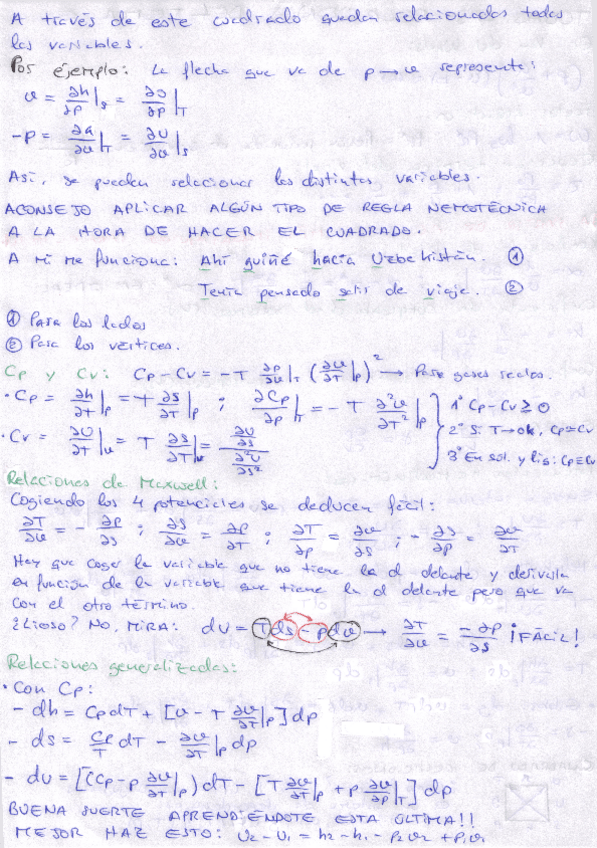 A través de este cuadrado quedan relacionadas todas
las variables.
Por ejemplo: La flecha que va de p → v representa:
v = ∂h/∂p|s = ∂g/∂p|T
-p = ∂a/∂v|T = ∂u/∂v|s
Así, se pueden relacionar las distintas variables.
ACONSEJO APLICAR ALGÚN TIPO DE REGLA NEMOTÉCNICA
A LA HORA DE HACER EL CUADRADO.
A mi me funciona: Ahí guiñé hacia Uzbekistán. ①
Tenía pensado salir de viaje. ②
① Para los lados
② Para los vértices.
Cp y Cv: Cp - Cv = -T ∂p/∂v|T (∂v/∂T|p)² → Para gases reales.
• Cp = ∂h/∂T|p = T ∂s/∂T|p ; ∂Cp/∂p|T = -T ∂²v/∂T²|p } 1º Cp - Cv ≥ 0
2º Si T→0K, Cp=Cv
• Cv = ∂U/∂T|v = T ∂s/∂T|v = (∂U/∂s)/(∂²U/∂s²)
3º En sol. y líq: Cp≅Cv
Relaciones de Maxwell:
Cogiendo los 4 potenciales se deducen fácil:
∂T/∂v = - ∂p/∂s ; ∂s/∂v = ∂p/∂T ; ∂T/∂p = ∂v/∂s ; - ∂s/∂p = ∂v/∂T
Hay que coger la variable que no tiene la d delante y derivarla
en función de la variable que tiene la d delante pero que va
con el otro término.
¿Lioso? NO, MIRA: dU = Tds - pdv → ∂T/∂v = -∂p/∂s ¡FÁCIL!
Relaciones generalizadas:
• Con Cp:
- dh = CpdT + [v - T ∂v/∂T|p] dp
- ds = Cp/T dT - ∂v/∂T|p dp
- dU = [(Cp - p ∂v/∂T|p) dT - [T ∂v/∂T|p + p ∂v/∂p|T] dp
BUENA SUERTE APRENDIÉNDOTE ESTA ÚLTIMA!!
MEJOR HAZ ESTO: U2 - U1 = h2 - h1 - p2v2 + p1v1